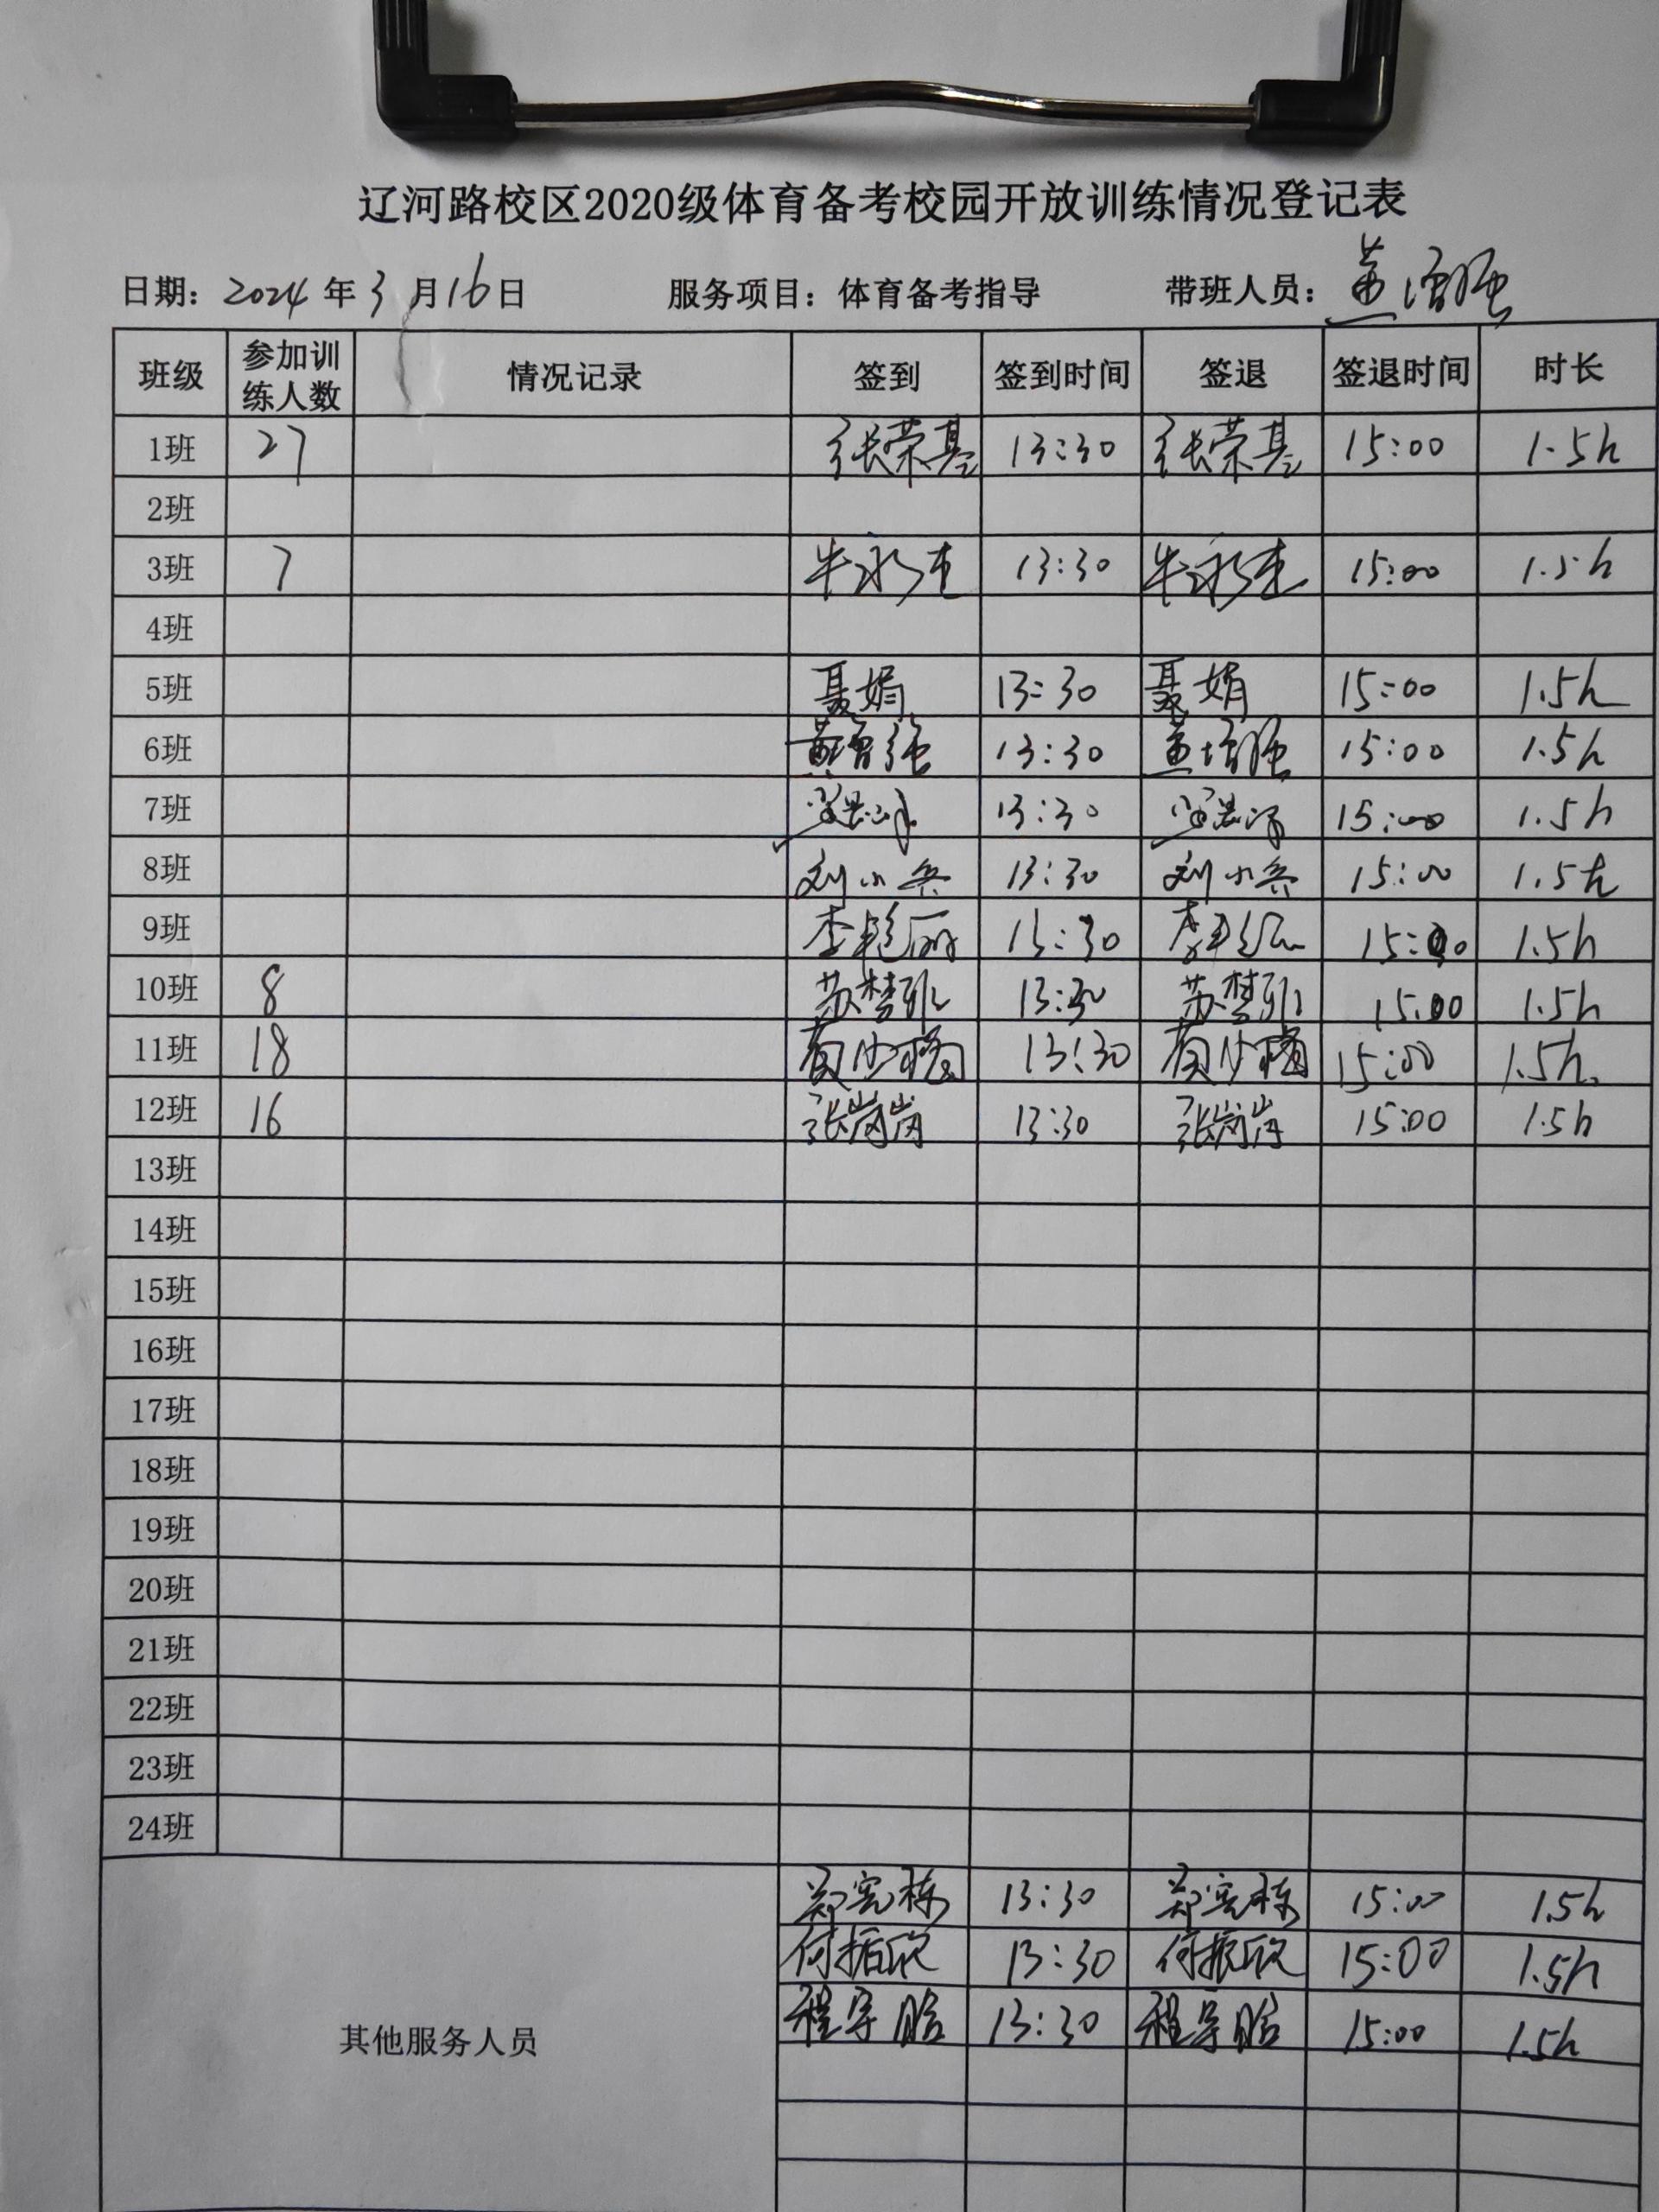 辽河路校区2020级体育备考校园开放训练情况登记表
日期: 2024 年 3 月 16 日 服务项目: 体育备考指导 带班人员: 黄增强
班级 参加训练人数 情况记录 签到 签到时间 签退 签退时间 时长
1班 27 张荣基 13:30 张荣基 15:00 1.5h
2班
3班 7 牛永杰 13:30 牛永杰 15:00 1.5h
4班
5班 聂娟 13:30 聂娟 15:00 1.5h
6班 黄增强 13:30 黄增强 15:00 1.5h
7班 13:30 15:00 1.5h
8班 刘小兵 13:30 刘小兵 15:00 1.5h
9班 李艳丽 13:30 李艳丽 15:00 1.5h
10班 8 苏梦雅 13:30 苏梦雅 15:00 1.5h
11班 18 13:30 15:00 1.5h
12班 16 张岗岗 13:30 张岗岗 15:00 1.5h
13班
14班
15班
16班
17班
18班
19班
20班
21班
22班
23班
24班
其他服务人员
郑宪栋 13:30 郑宪栋 15:00 1.5h
何振欣 13:30 何振欣 15:00 1.5h
程宇晗 13:30 程宇晗 15:00 1.5h